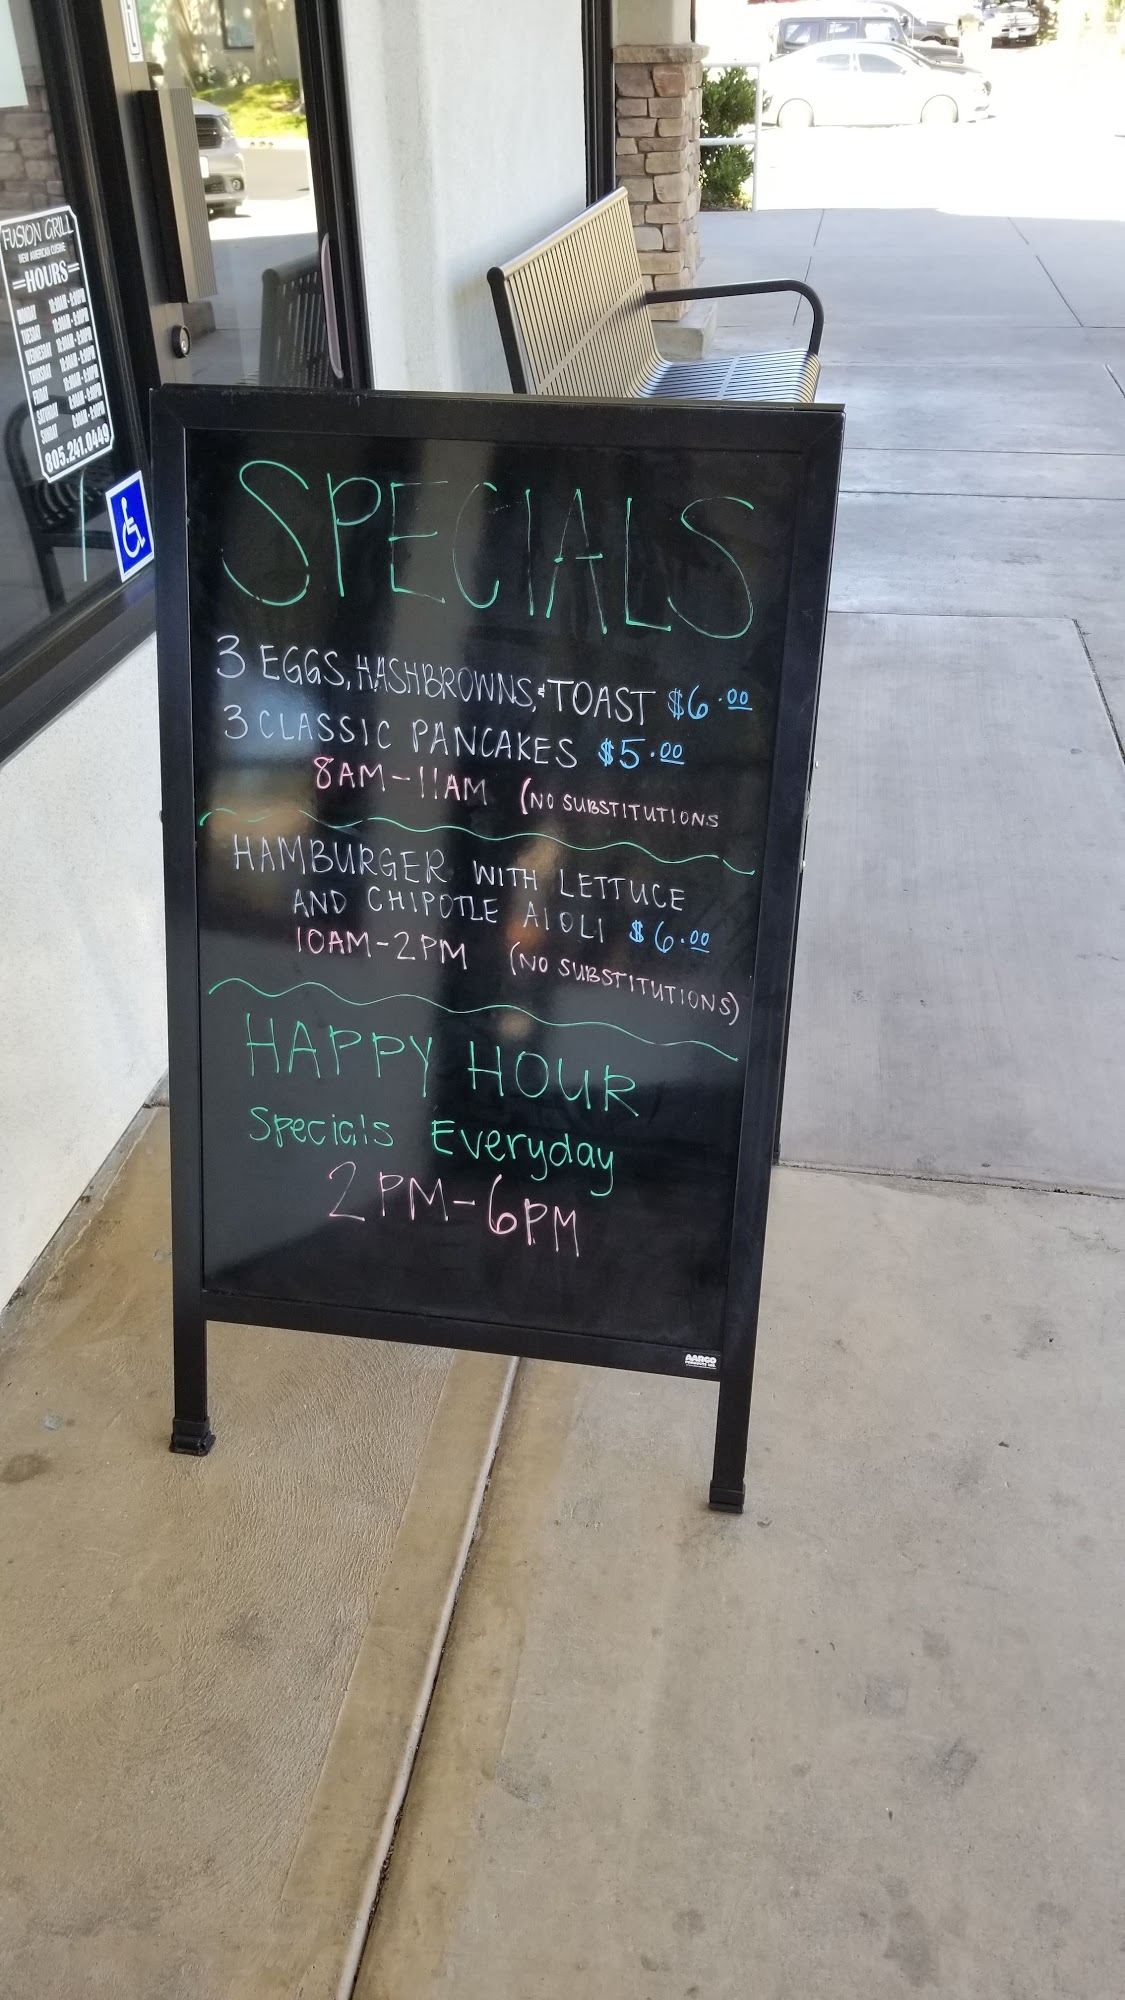 FUSION GRILL
NEW AMERICAN CUISINE
HOURS
MONDAY
TUESDAY
WEDNESDAY
THURSDAY
FRIDAY
SATURDAY
SUNDAY
805.241.0449
SPECIALS
3 EGGS, HASHBROWNS, & TOAST $6.00
3 CLASSIC PANCAKES $5.00
8AM-11AM (NO SUBSTITUTIONS
HAMBURGER WITH LETTUCE
AND CHIPOTLE AIOLI $6.00
10AM-2PM (NO SUBSTITUTIONS)
HAPPY HOUR
Specials Everyday
2PM-6PM
AARCO